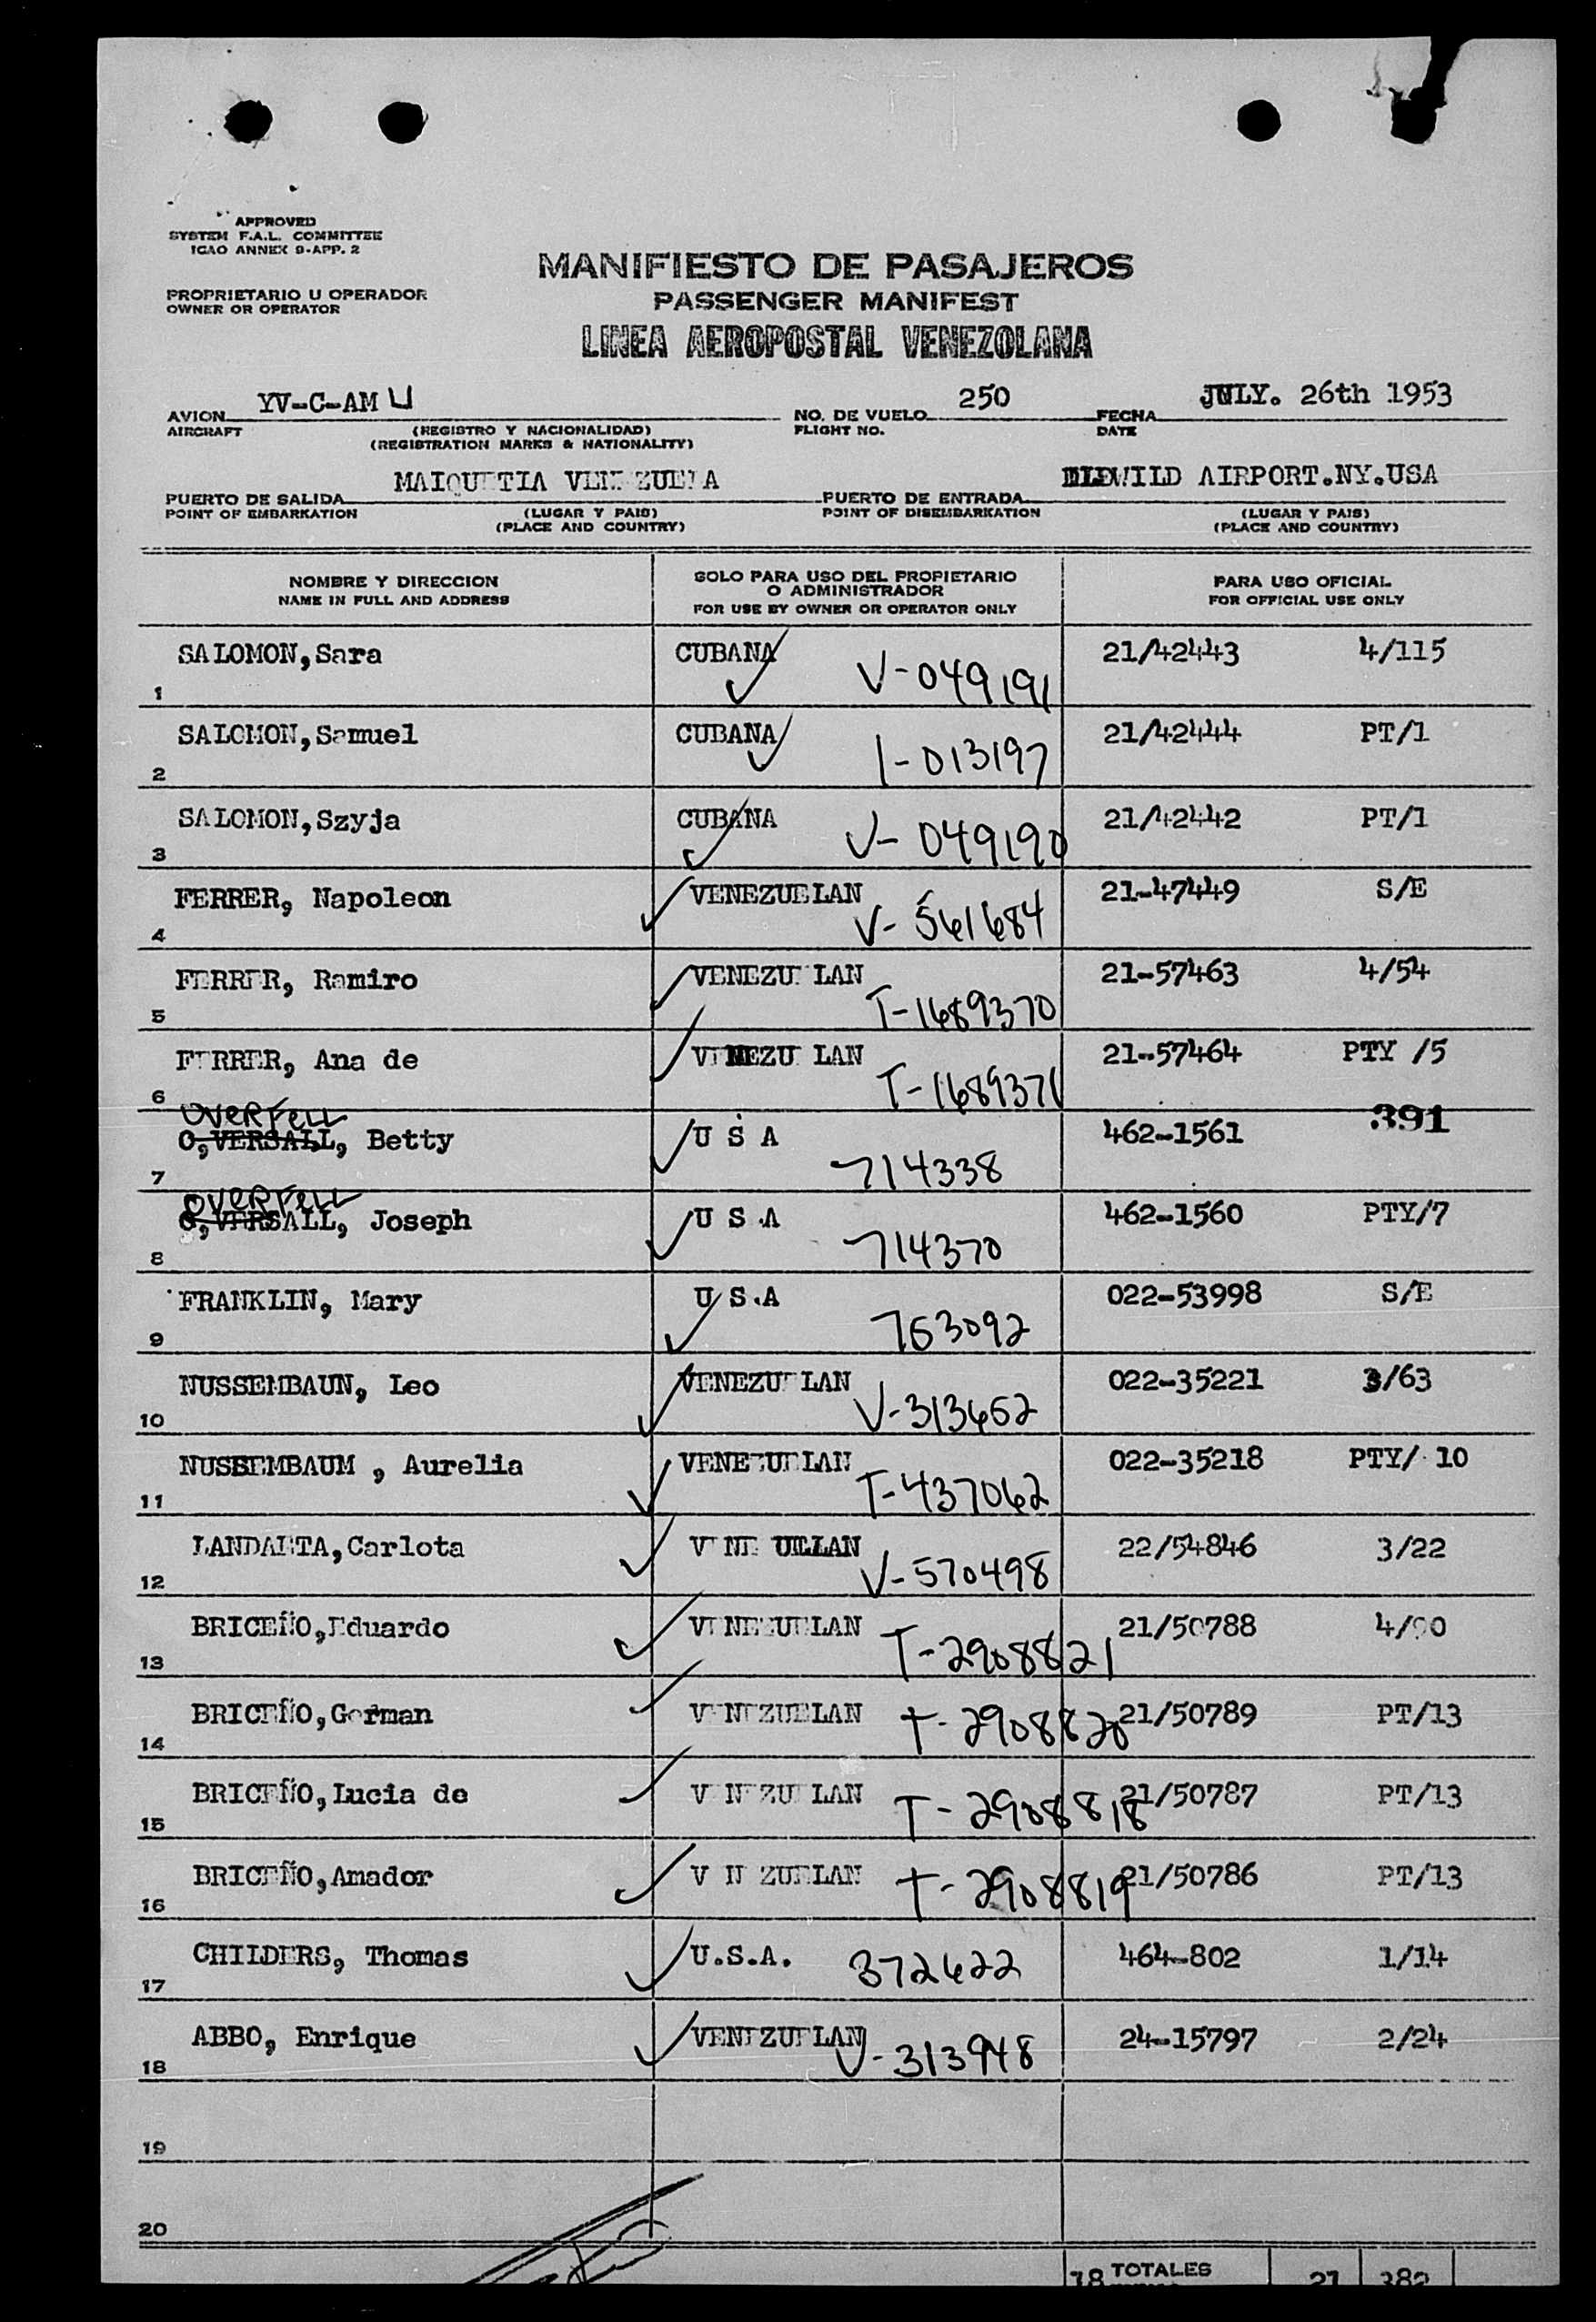 APPROVED
SYSTEM F.A.L. COMMITTEE
ICAO ANNEX 9-APP. 2
MANIFIESTO DE PASAJEROS
PROPRIETARIO U OPERADOR
OWNER OR OPERATOR
PASSENGER MANIFEST
LINEA AEROPOSTAL VENEZOLANA
AVION YV-C-AM U NO. DE VUELO 250 FECHA JULY. 26th 1953
AIRCRAFT (REGISTRO Y NACIONALIDAD) FLIGHT NO. DATE
(REGISTRATION MARKS & NATIONALITY)
PUERTO DE SALIDA MAIQUETIA VENEZUELA PUERTO DE ENTRADA IDLEWILD AIRPORT.NY.USA
POINT OF EMBARKATION (LUGAR Y PAIS) POINT OF DISEMBARKATION (LUGAR Y PAIS)
(PLACE AND COUNTRY) (PLACE AND COUNTRY)
NOMBRE Y DIRECCION SOLO PARA USO DEL PROPIETARIO O ADMINISTRADOR PARA USO OFICIAL
NAME IN FULL AND ADDRESS FOR USE BY OWNER OR OPERATOR ONLY FOR OFFICIAL USE ONLY
1 SALOMON,Sara CUBANA V-049191 21/42443 4/115
2 SALOMON,Samuel CUBANA 1-013197 21/42444 PT/1
3 SALOMON,Szyja CUBANA V-049190 21/42442 PT/1
4 FERRER, Napoleon VENEZUELAN V-561684 21-47449 S/E
5 FERRER, Ramiro VENEZUELAN T-1689370 21-57463 4/54
6 FERRER, Ana de VENEZUELAN T-1689371 21-57464 PTY /5
OVERFELL 391
7 O,VERSALL, Betty U S A 714338 462-1561
OVERFELL
8 O,VERSALL, Joseph U S A 714370 462-1560 PTY/7
9 FRANKLIN, Mary U S.A 763092 022-53998 S/E
10 NUSSEMBAUN, Leo VENEZUELAN V-313652 022-35221 3/63
11 NUSSEMBAUM , Aurelia VENEZUELAN T-437062 022-35218 PTY/ 10
12 LANDAETA,Carlota VENEZUELAN V-570498 22/54846 3/22
13 BRICEÑO,Eduardo VENEZUELAN T-2908821 21/50788 4/90
14 BRICEÑO,German VENEZUELAN T-2908820 21/50789 PT/13
15 BRICEÑO,Lucia de VENEZUELAN T-2908818 21/50787 PT/13
16 BRICEÑO,Amador VENEZUELAN T-2908819 21/50786 PT/13
17 CHILDERS, Thomas U.S.A. 372622 464-802 1/14
18 ABBO, Enrique VENEZUELAN V-313948 24-15797 2/24
19
20
18 TOTALES 21 382